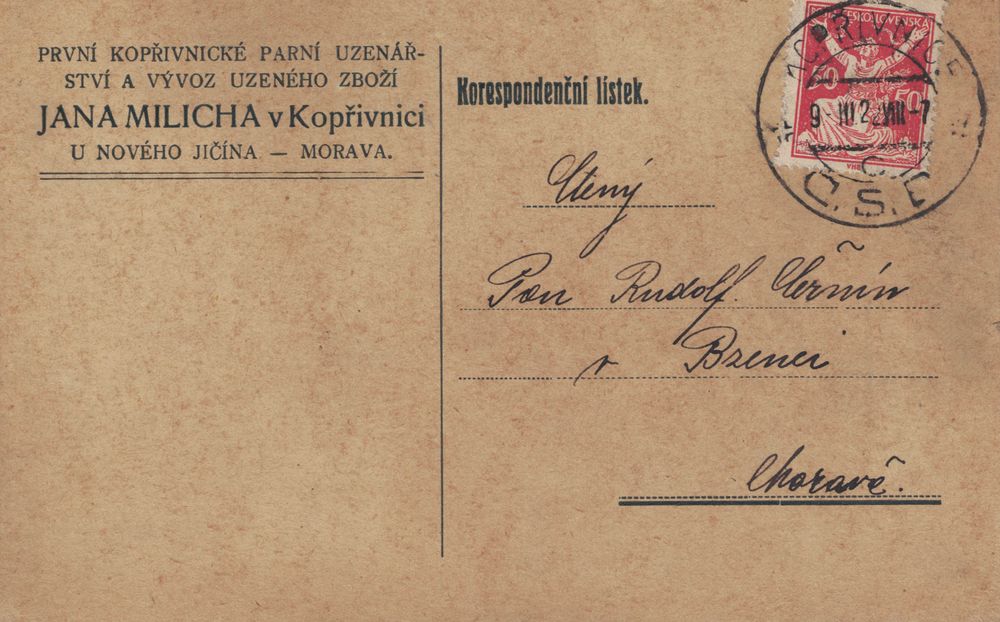 PRVNÍ KOPŘIVNICKÉ PARNÍ UZENÁŘ-
STVÍ A VÝVOZ UZENÉHO ZBOŽÍ
JANA MILICHA v Kopřivnici
U NOVÉHO JIČÍNA — MORAVA.
Korespondenční lístek.
ČESKOSLOVENSKÁ
50
KOPŘIVNICE
Č.S.
Ctěný
Pan Rudolf
v Bzenci
Moravě.